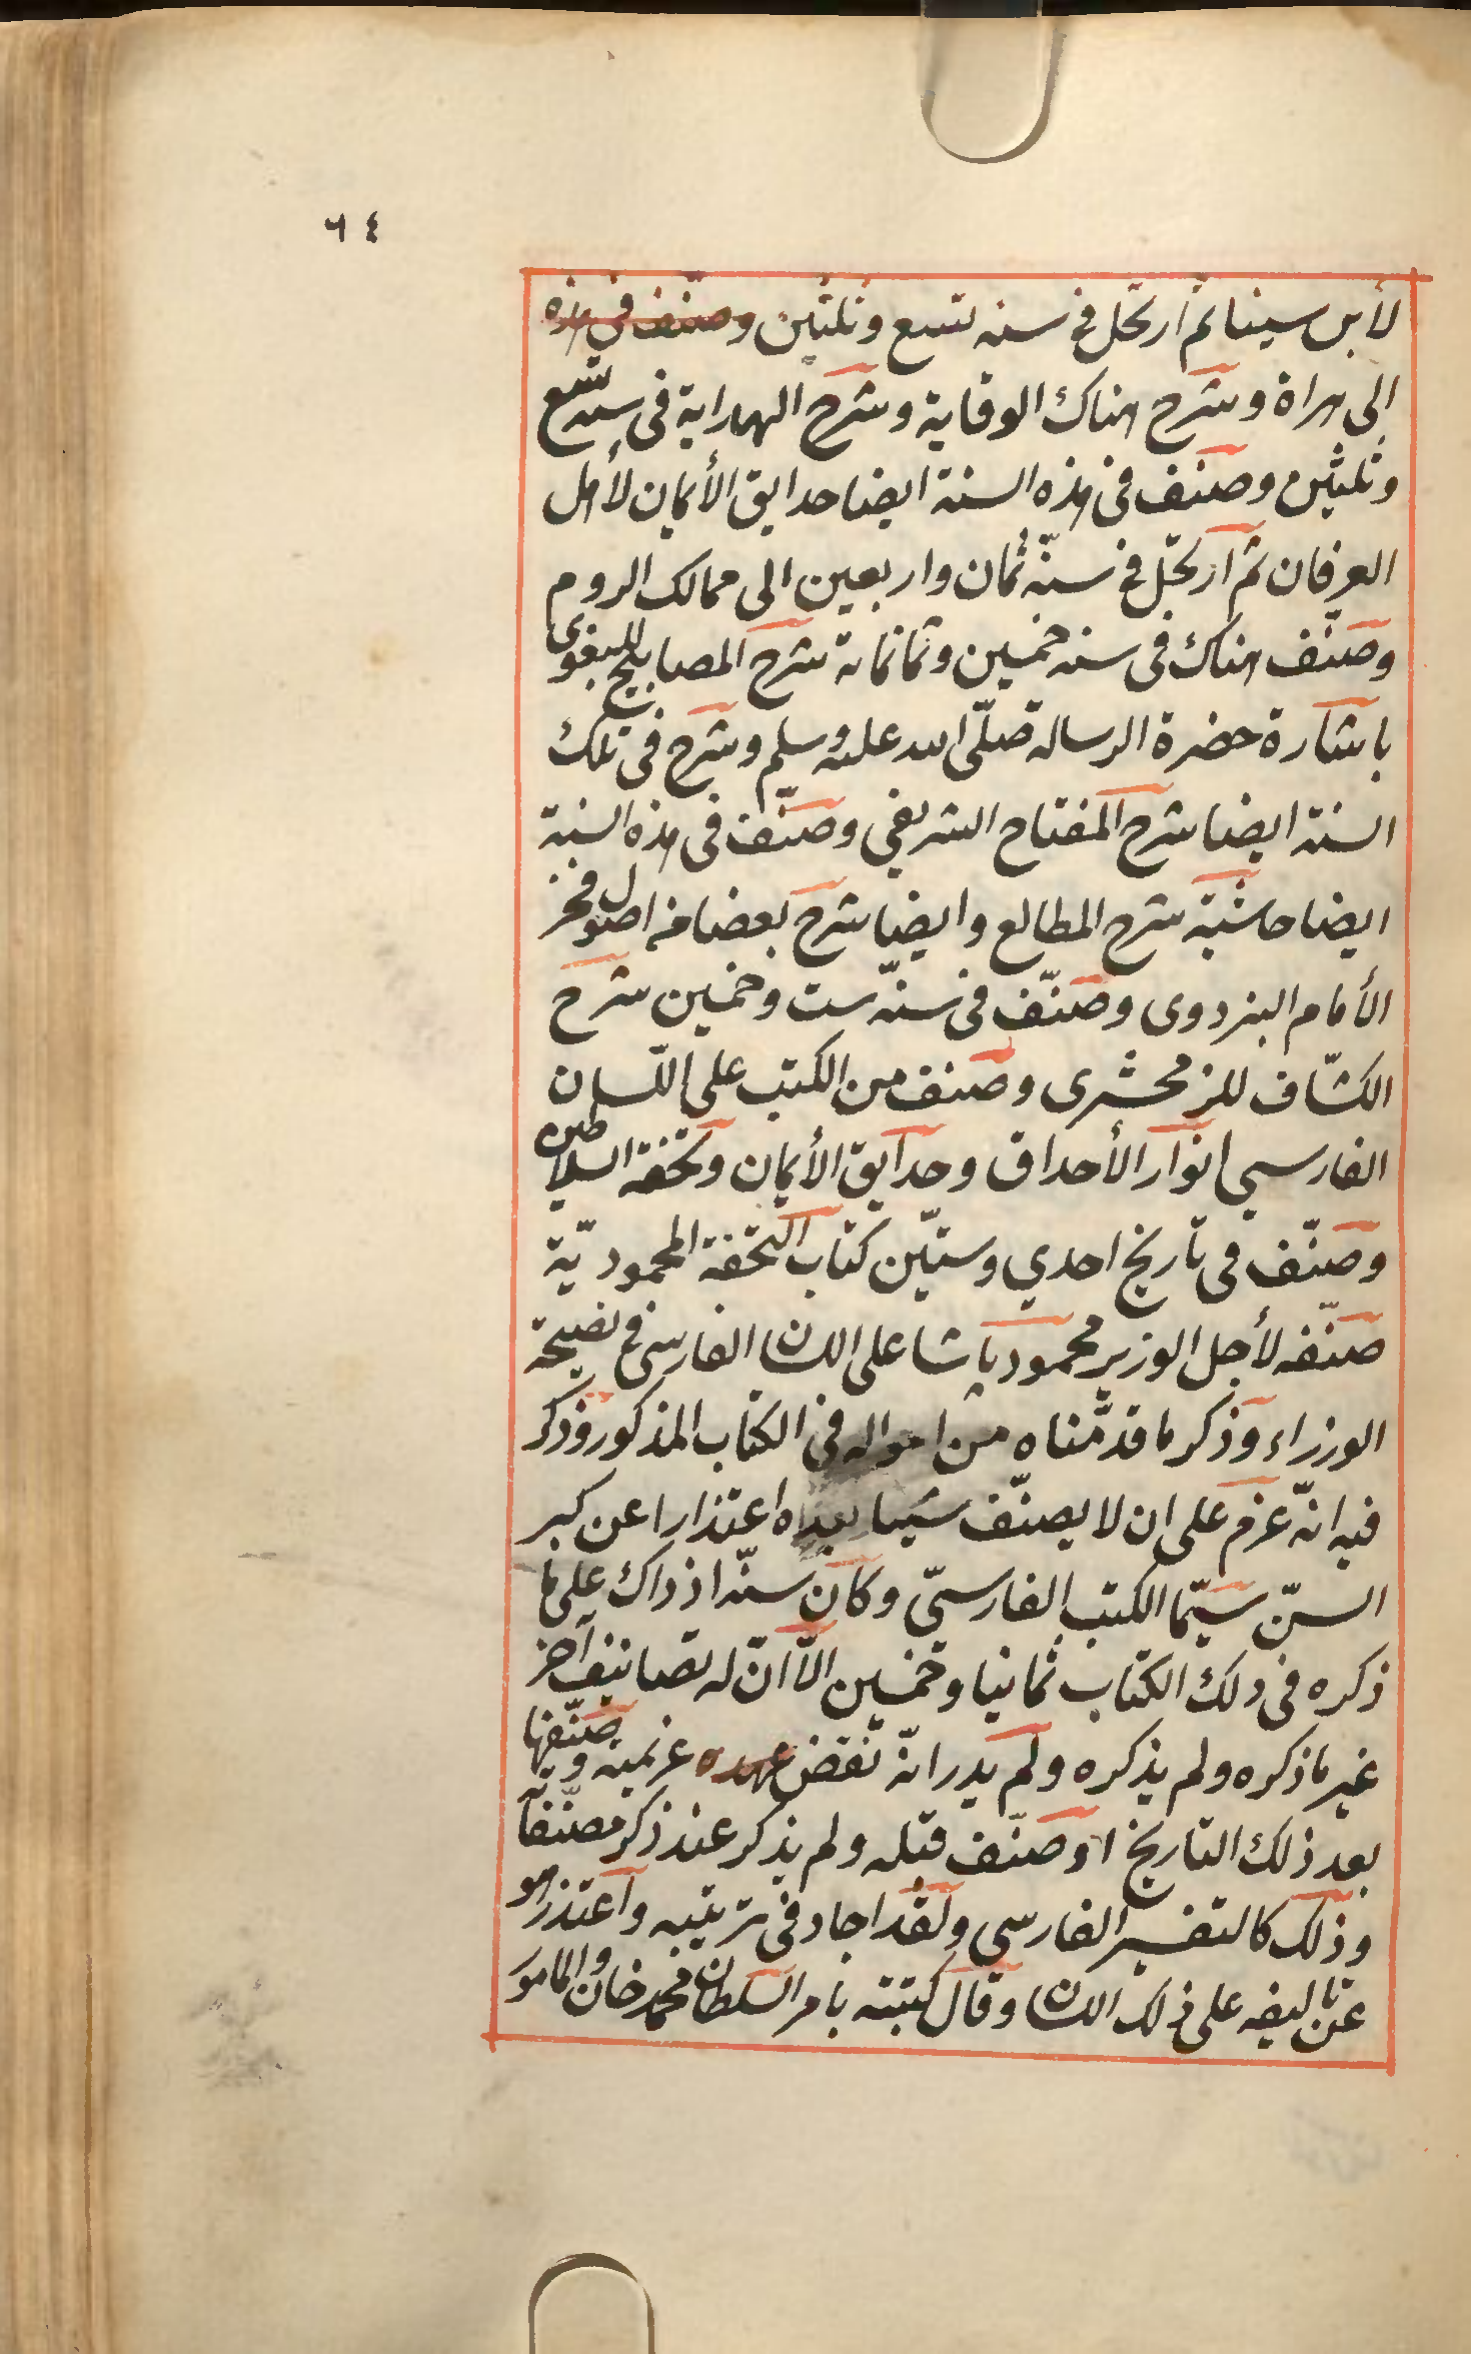 ٦٤
لأبن سينا ثم ارتحل في سنه تسع وثلثين وصنف في هذه
الى هراة وشرح هناك الوقاية وشرح الهداية في سنه تسع
وثلثين وصنف في هذه السنة ايضا حدايق الأيمان لأهل
العرفان ثم ارتحل في سنّة ثمان واربعين الى ممالك الروم
وصنّف هناك في سنه خمسين وثمانمائة شرح المصابيح للبغوي
باشارة حضرة الرسالة صلّى الله عليه وسلم وشرح في تلك
السنة ايضا شرح المفتاح الشريفي وصنّف في هذه السنة
ايضا حاشية شرح المطالع وايضا شرح بعضا من اصول فخر
الأمام البزدوى وصنّف في سنّة ست وخمسين شرح
الكشّاف للزمخشرى وصنف من الكتب على اللّسان
الفارسي انوار الأحداق وحدايق الأيمان وتحفة السلاطين
وصنّف في تاريخ احدي وستّين كتاب التحفة المحموديّة
صنّفه لأجل الوزير محمود پاشا على اللسان الفارسى في نصيحة
الوزراء وذكر ما قدّمناه من احواله في الكتاب المذكور وذكر
فيه انّه عزم على ان لا يصنّف شيئا بعده اعتذارا عن كبر
السنّ سيّما الكتب الفارسيّ وكان سنّه اذ ذاك على ما
ذكره في ذلك الكتاب ثمانيا وخمسين الّا انّ له تصانيف آخر
غير ما ذكره ولم يذكره ولم يدر انّه نقض عهده عزيمته وصنّفها
بعد ذلك التاريخ او صنّف قبله ولم يذكر عند ذكر مصنّفا
وذلك كالتفسير الفارسي ولقد اجاد في ترتيبه واعتذر هو
عن تاليفه على ذلك اللسان وقال كتبته بامر السلطان محمد خان والمامو